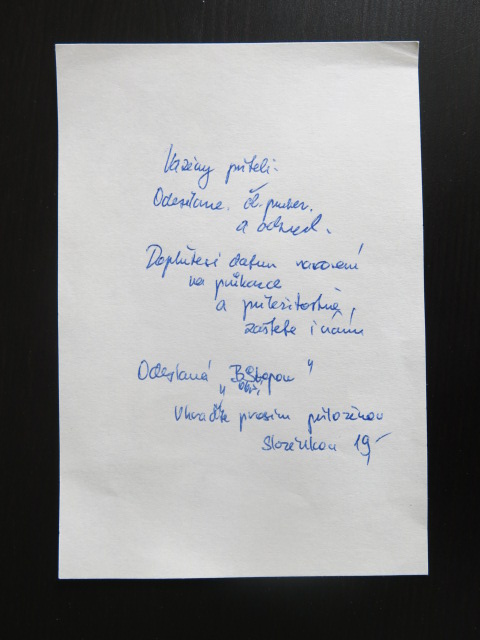 Vážený příteli.
Odesíláme čl. průkaz.
a odznak.
Doplňte si datum narození
na průkazce
a příležitostně,
zašlete i nám
Odeslaná "B. Stopou"
Uhraďte prosím přiloženou
Složenkou 19,-